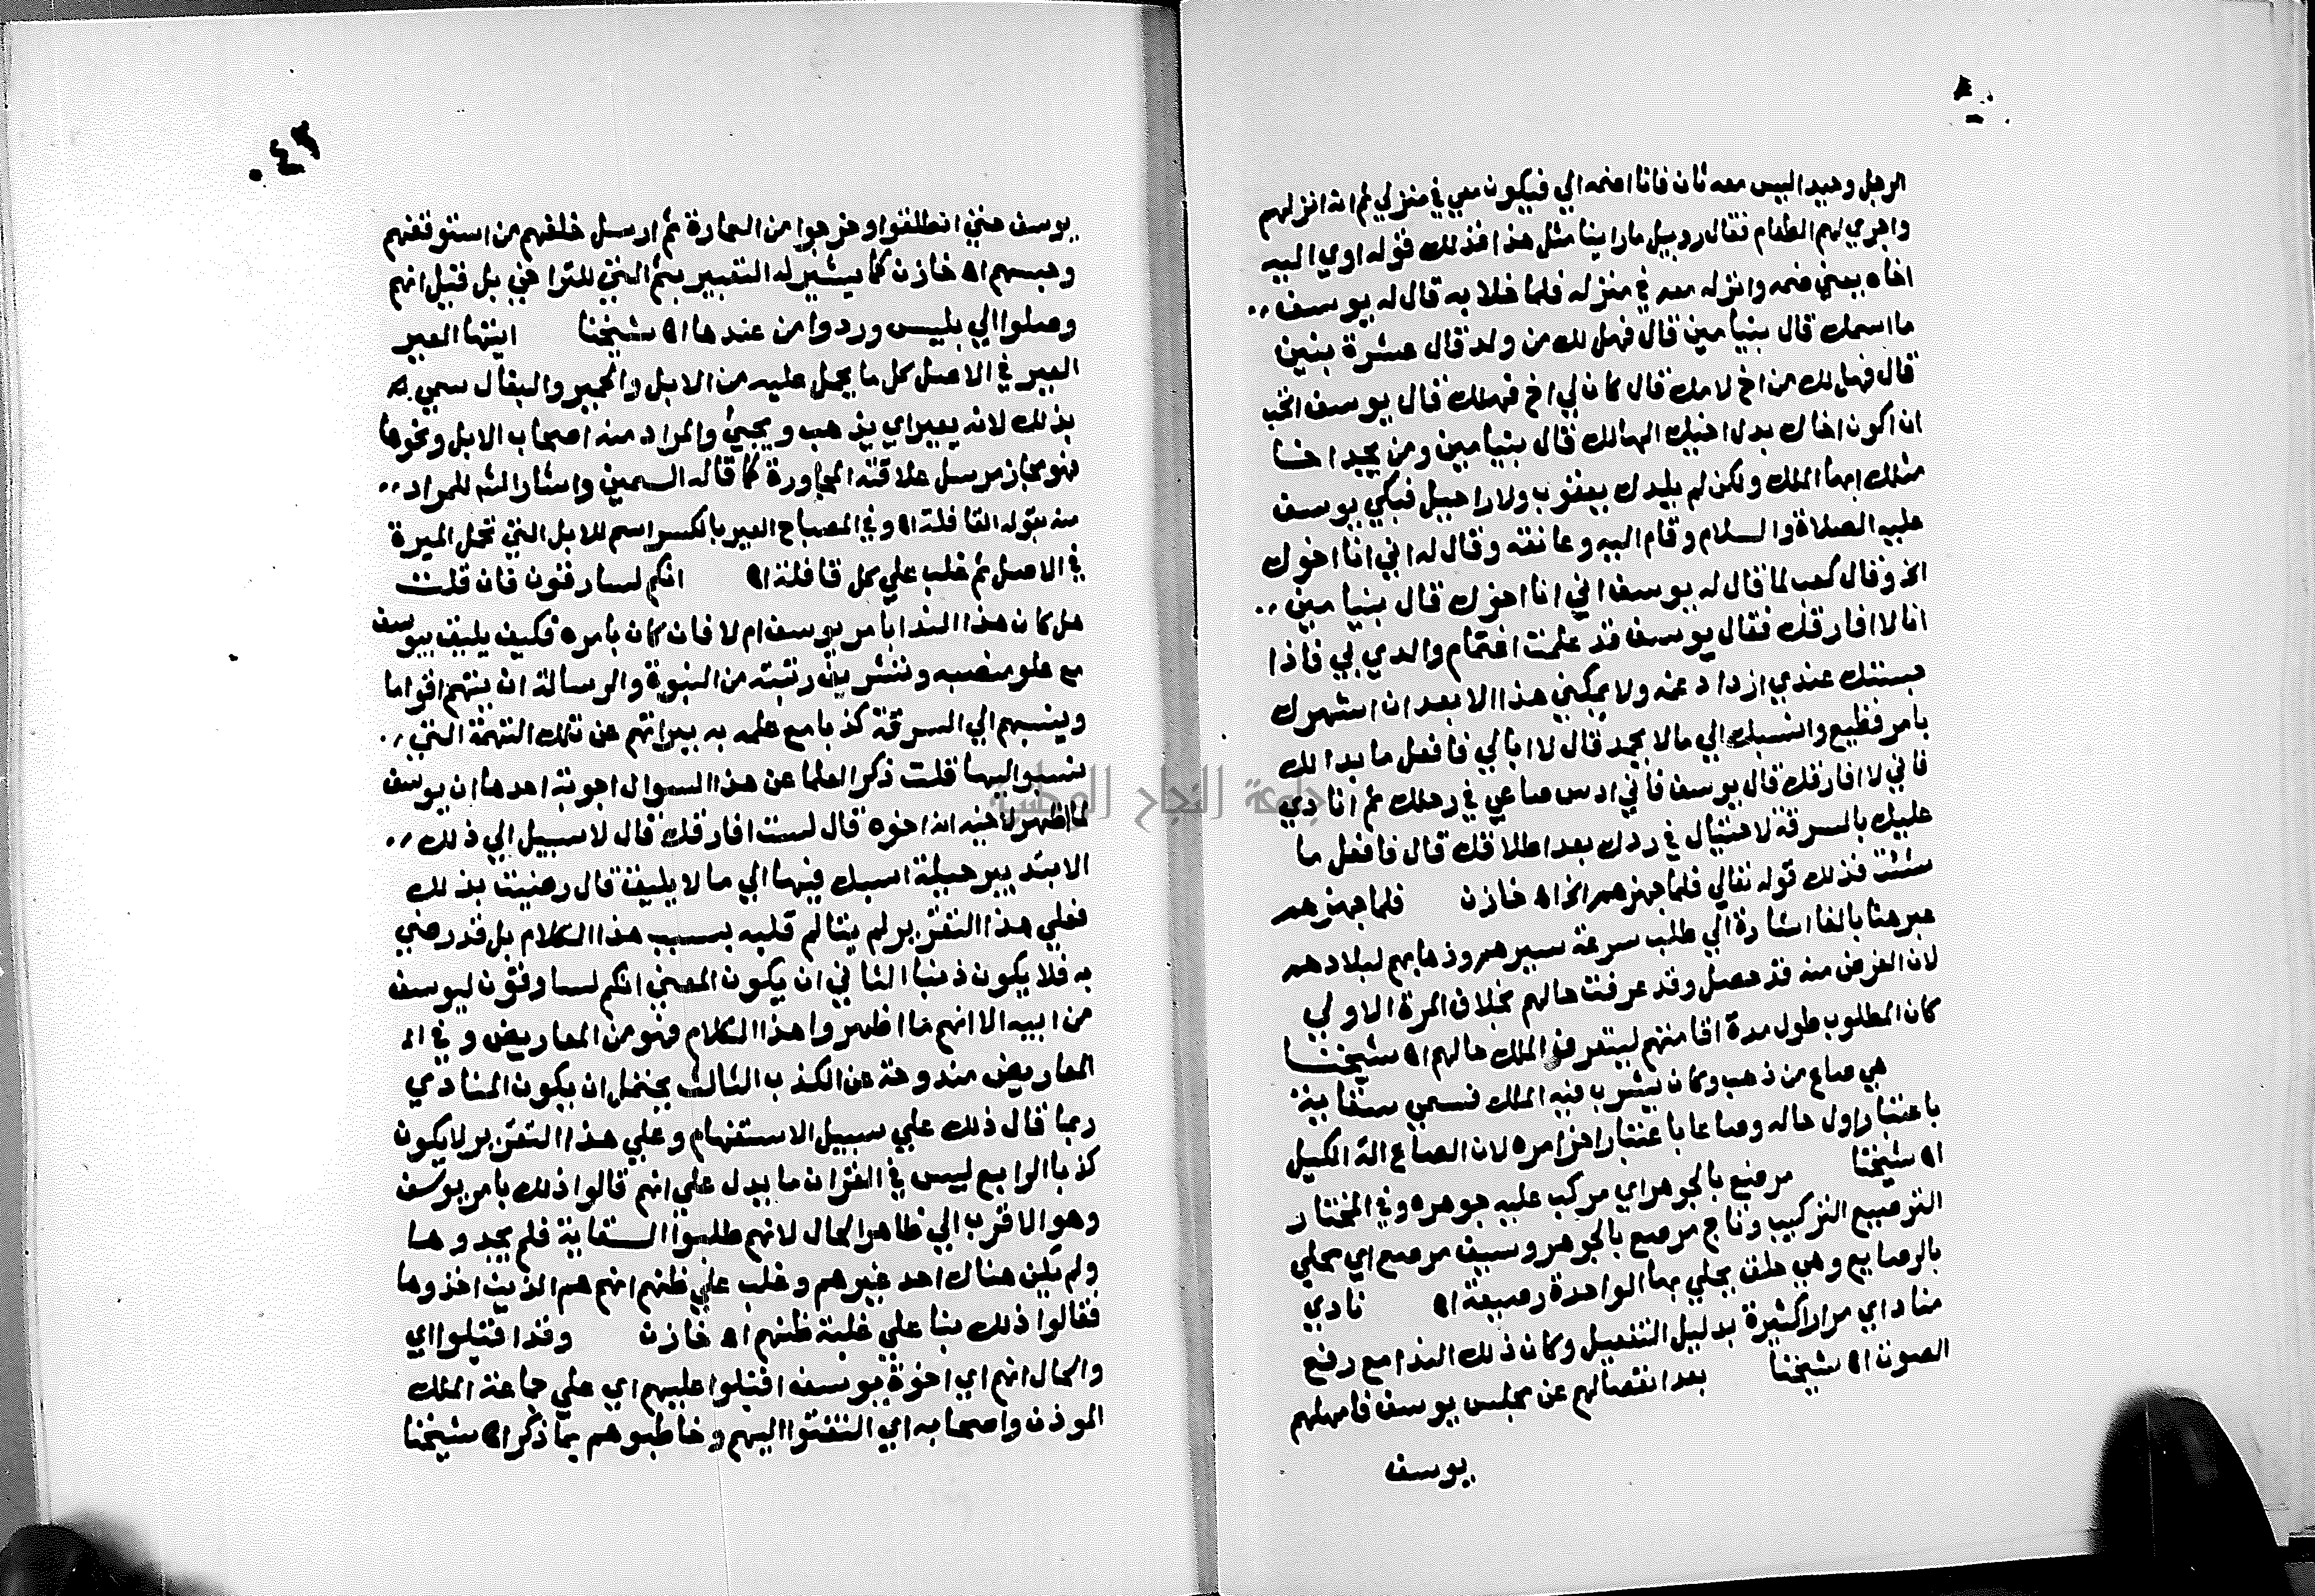 الرجل وحيدا ليس معه ثان فانا اضمه الي فيكون معي في منزلي ثم انه انزلهم
واجري لهم الطعام فقال روبيل ما راينا مثل هذا فذلك قوله اوي اليه
اخاه يعني ضمه وانزله معه في منزله فلما خلا به قال له يوسف
ما اسمك قال بنيامين قال فهل لك من ولد قال عشرة بنين
قال فهل لك من اخ لامك قال كان لي اخ فهلك قال يوسف اتحب
ان اكون اخاك بدل اخيك الهالك قال بنيامين ومن يجد اخا
مثلك ايها الملك ولكن لم يلدك يعقوب ولا راحيل فبكي يوسف
عليه الصلاة والسلام وقام اليه وعانقه وقال له اني انا اخوك
الخ وقال كعب لما قال له يوسف اني انا اخوك قال بنيامين
انا لا افارقك فقال يوسف قد علمت اغتمام والدي بي فاذا
حبستك عندي ازداد غمه ولا يمكنني هذا الا بعد ان اشهرك
بامر فظيع وانسبك الي مالا يحمد قال لا ابالي فافعل ما بدا لك
فاني لا افارقك قال يوسف فاني ادس صاعي في رحلك ثم انادي
عليك بالسرقة لاحتيال في ردك بعد اطلاقك قال فافعل ما
شئت فذلك قوله تعالي فلما جهزهم الخ اه خازن فلما جهزهم
عبر هنا بالفا اشارة الي طلب سرعة سيرهم وذهابهم لبلادهم
لان الغرض منه قد حصل وقد عرفت حالهم بخلاف المرة الاولي
كان المطلوب طول مدة اقامتهم ليتعرف الملك حالهم اه شيخنا
هي صاع من ذهب وكان يشرب فيه الملك فسمي سقاية
باعتبار اول حاله وصاعا باعتبار اخر امره لان الصاع الة الكيل
اه شيخنا مرصع بالجوهر اي مركب عليه جوهره وفي المختار
الترصيع التركيب وتاج مرصع بالجوهر وسيف مرصع اي محلي
بالرصايع وهي حلق يحلي بها الواحدة رصيعة اه نادي
مناد اي مرارا كثيرة بدليل التفعيل وكان ذلك الندا مع رفع
الصوت اه شيخنا بعد انفصالهم عن مجلس يوسف فامهلهم
يوسف
٤٢
يوسف حتي انطلقوا وخرجوا من العمارة ثم ارسل خلفهم من استوقفهم
وحبسهم اه خازن كما يشير له التعبير بثم التي للتراخي بل قيل انهم
وصلوا الي بلبيس وردوا من عندها اه شيخنا ايتها العير
العير في الاصل كل ما يحمل عليه من الابل والحمير والبغال سمي
بذلك لانه يعير اي يذهب ويجئ والمراد منه اصحاب الابل ونحوها
فهو مجاز مرسل علاقته المجاورة كما قاله السمين واشار الش للمراد
منه بقوله القافلة اه وفي المصباح العير بالكسر اسم للابل التي تحمل الميرة
في الاصل ثم غلب علي كل قافلة اه انكم لسارقون فان قلت
هل كان هذا الندا بامر يوسف ام لا فان كان بامره فكيف يليق بيوسف
مع علو منصبه وتشريف رتبته من النبوة والرسالة ان يتهم اقواما
وينسبهم الي السرقة كذبا مع علمه ببراتهم عن تلك التهمة التي
نسبوا اليها قلت ذكر العلما عن هذا السوال اجوبة احدها ان يوسف
لما اظهر لاخيه انه اخوه قال لست افارقك قال لا سبيل الي ذلك
الا بتدبير حيلة انسبك فيها الي ما لا يليق قال رضيت بذلك
فعلي هذا التقرير لم يتالم قلبه بسبب هذا الكلام بل قد رضي
به فلا يكون ذنبا الثاني ان يكون المعني انكم لسارقون ليوسف
من ابيه الا انهم ما اظهروا هذا الكلام فهو من المعاريض وفي الـ
المعاريض مندوحة عن الكذب الثالث يحتمل ان يكون المنادي
ربما قال ذلك علي سبيل الاستفهام وعلي هذا التقرير لا يكون
كذبا الرابع ليس في القران ما يدل علي انهم قالوا ذلك بامر يوسف
وهو الاقرب الي ظاهر الحال لانهم طلبوا السقاية فلم يجدوها
ولم يكن هناك احد غيرهم وغلب علي ظنهم انهم هم الذين اخذوها
فقالوا ذلك بنا علي غلبة ظنهم اه خازن وقد اقبلوا اي
والحال انهم اي اخوة يوسف اقبلوا عليهم اي علي جماعة الملك
الموذن واصحابه اي التفتوا اليهم وخاطبوهم بما ذكر اه شيخنا
جامعة النجاح الوطنية